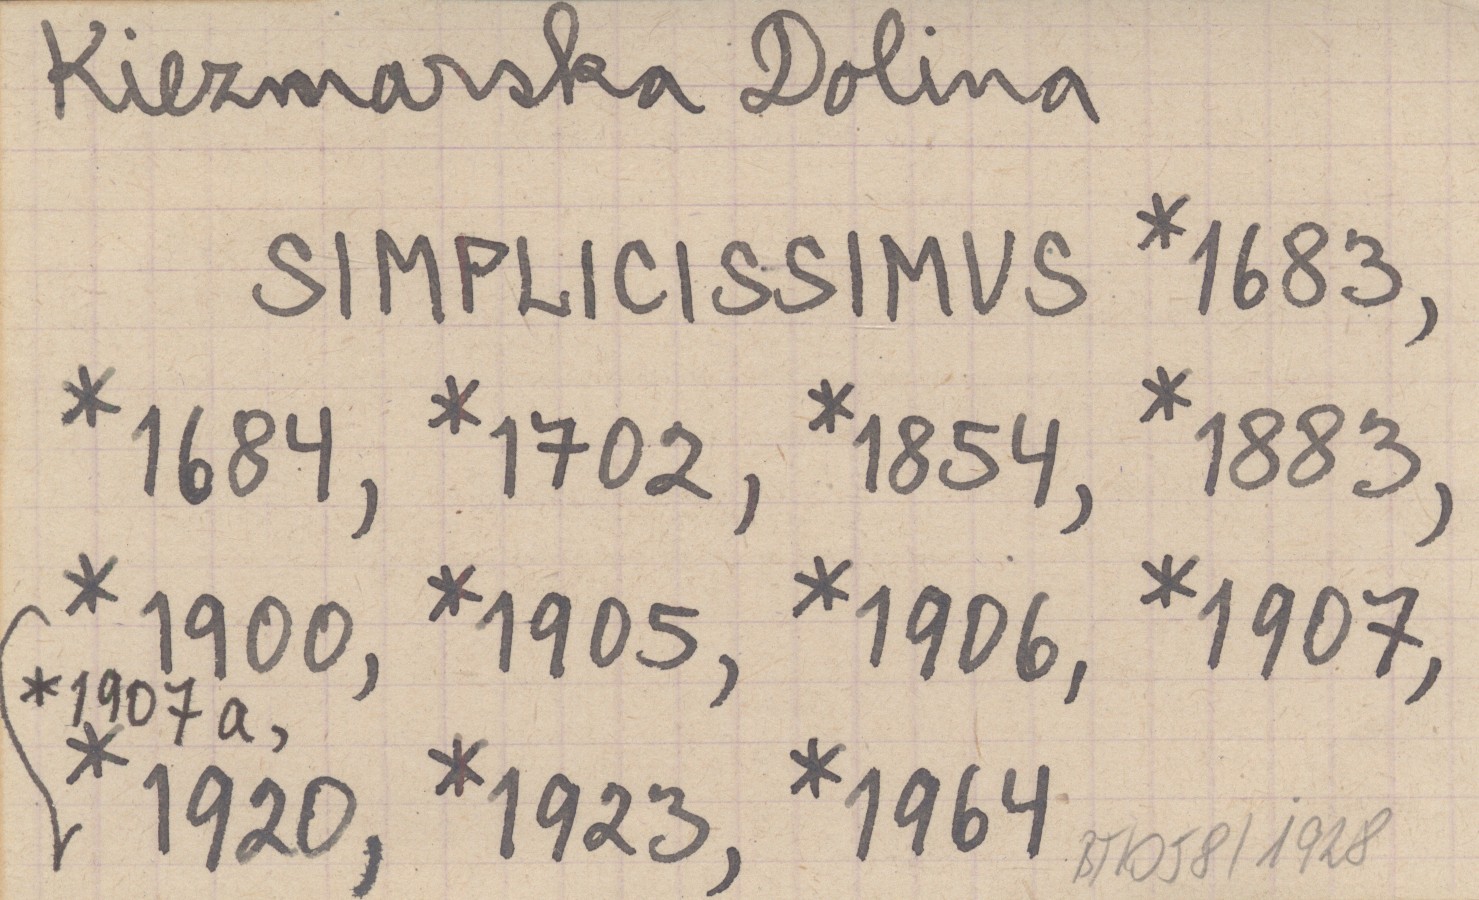 Kiezmarska Dolina
SIMPLICISSIMUS *1683,
*1684, *1702, *1854, *1883,
*1900, *1905, *1906, *1907,
*1907a,
*1920, *1923, *1964
58/1928